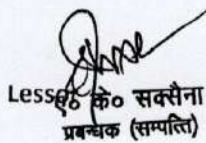 Lessor
ए० के० सक्सैना
प्रबन्धक (सम्पत्ति)